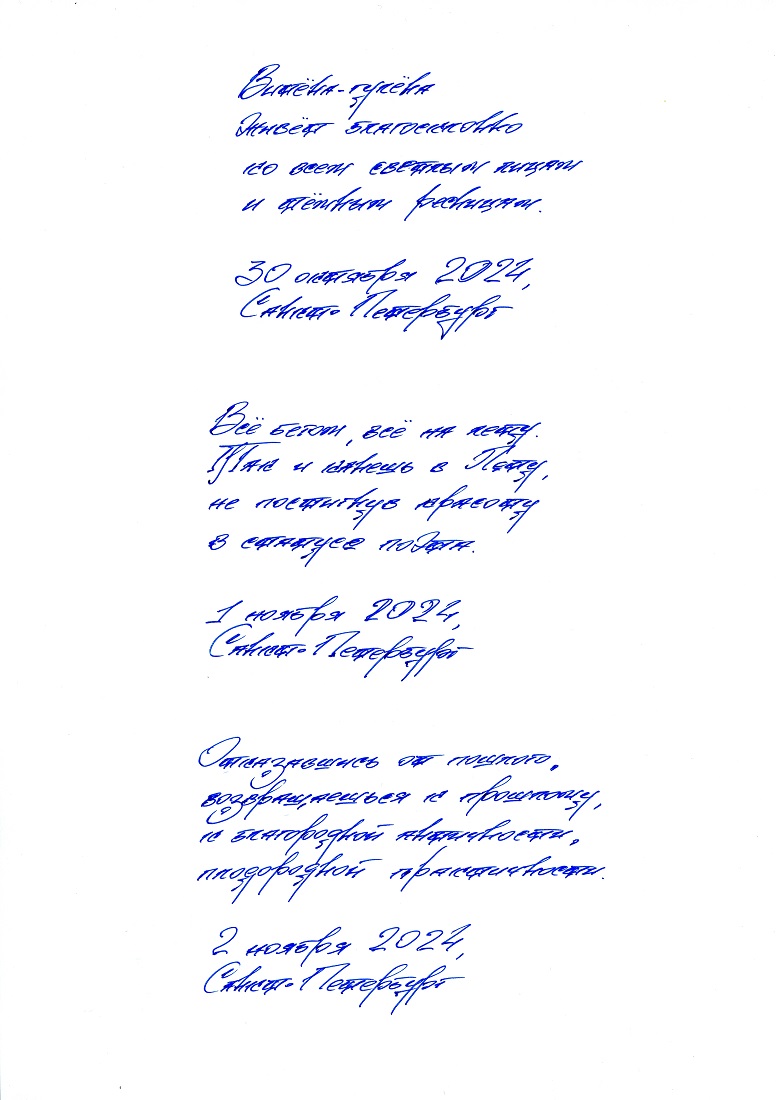 Витёва-гулёва
живёт благосклонно
ко всем светлым лицам
и тёмным ресницам.
30 октября 2024,
Санкт-Петербург
Всё бегом, всё на лету.
Так и канешь в Лету,
не постигнув красоту
в статусе поЭта.
1 ноября 2024,
Санкт-Петербург
Отказавшись от пошлого,
возвращаешься к прошлому,
к благородной античности,
плодородной практичности.
2 ноября 2024,
Санкт-Петербург